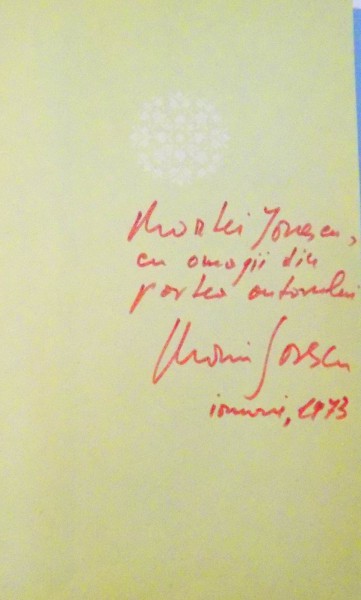 Martei Ionescu,
cu omagii din
partea autorului
Marin Sorescu
ianuarie, 1973